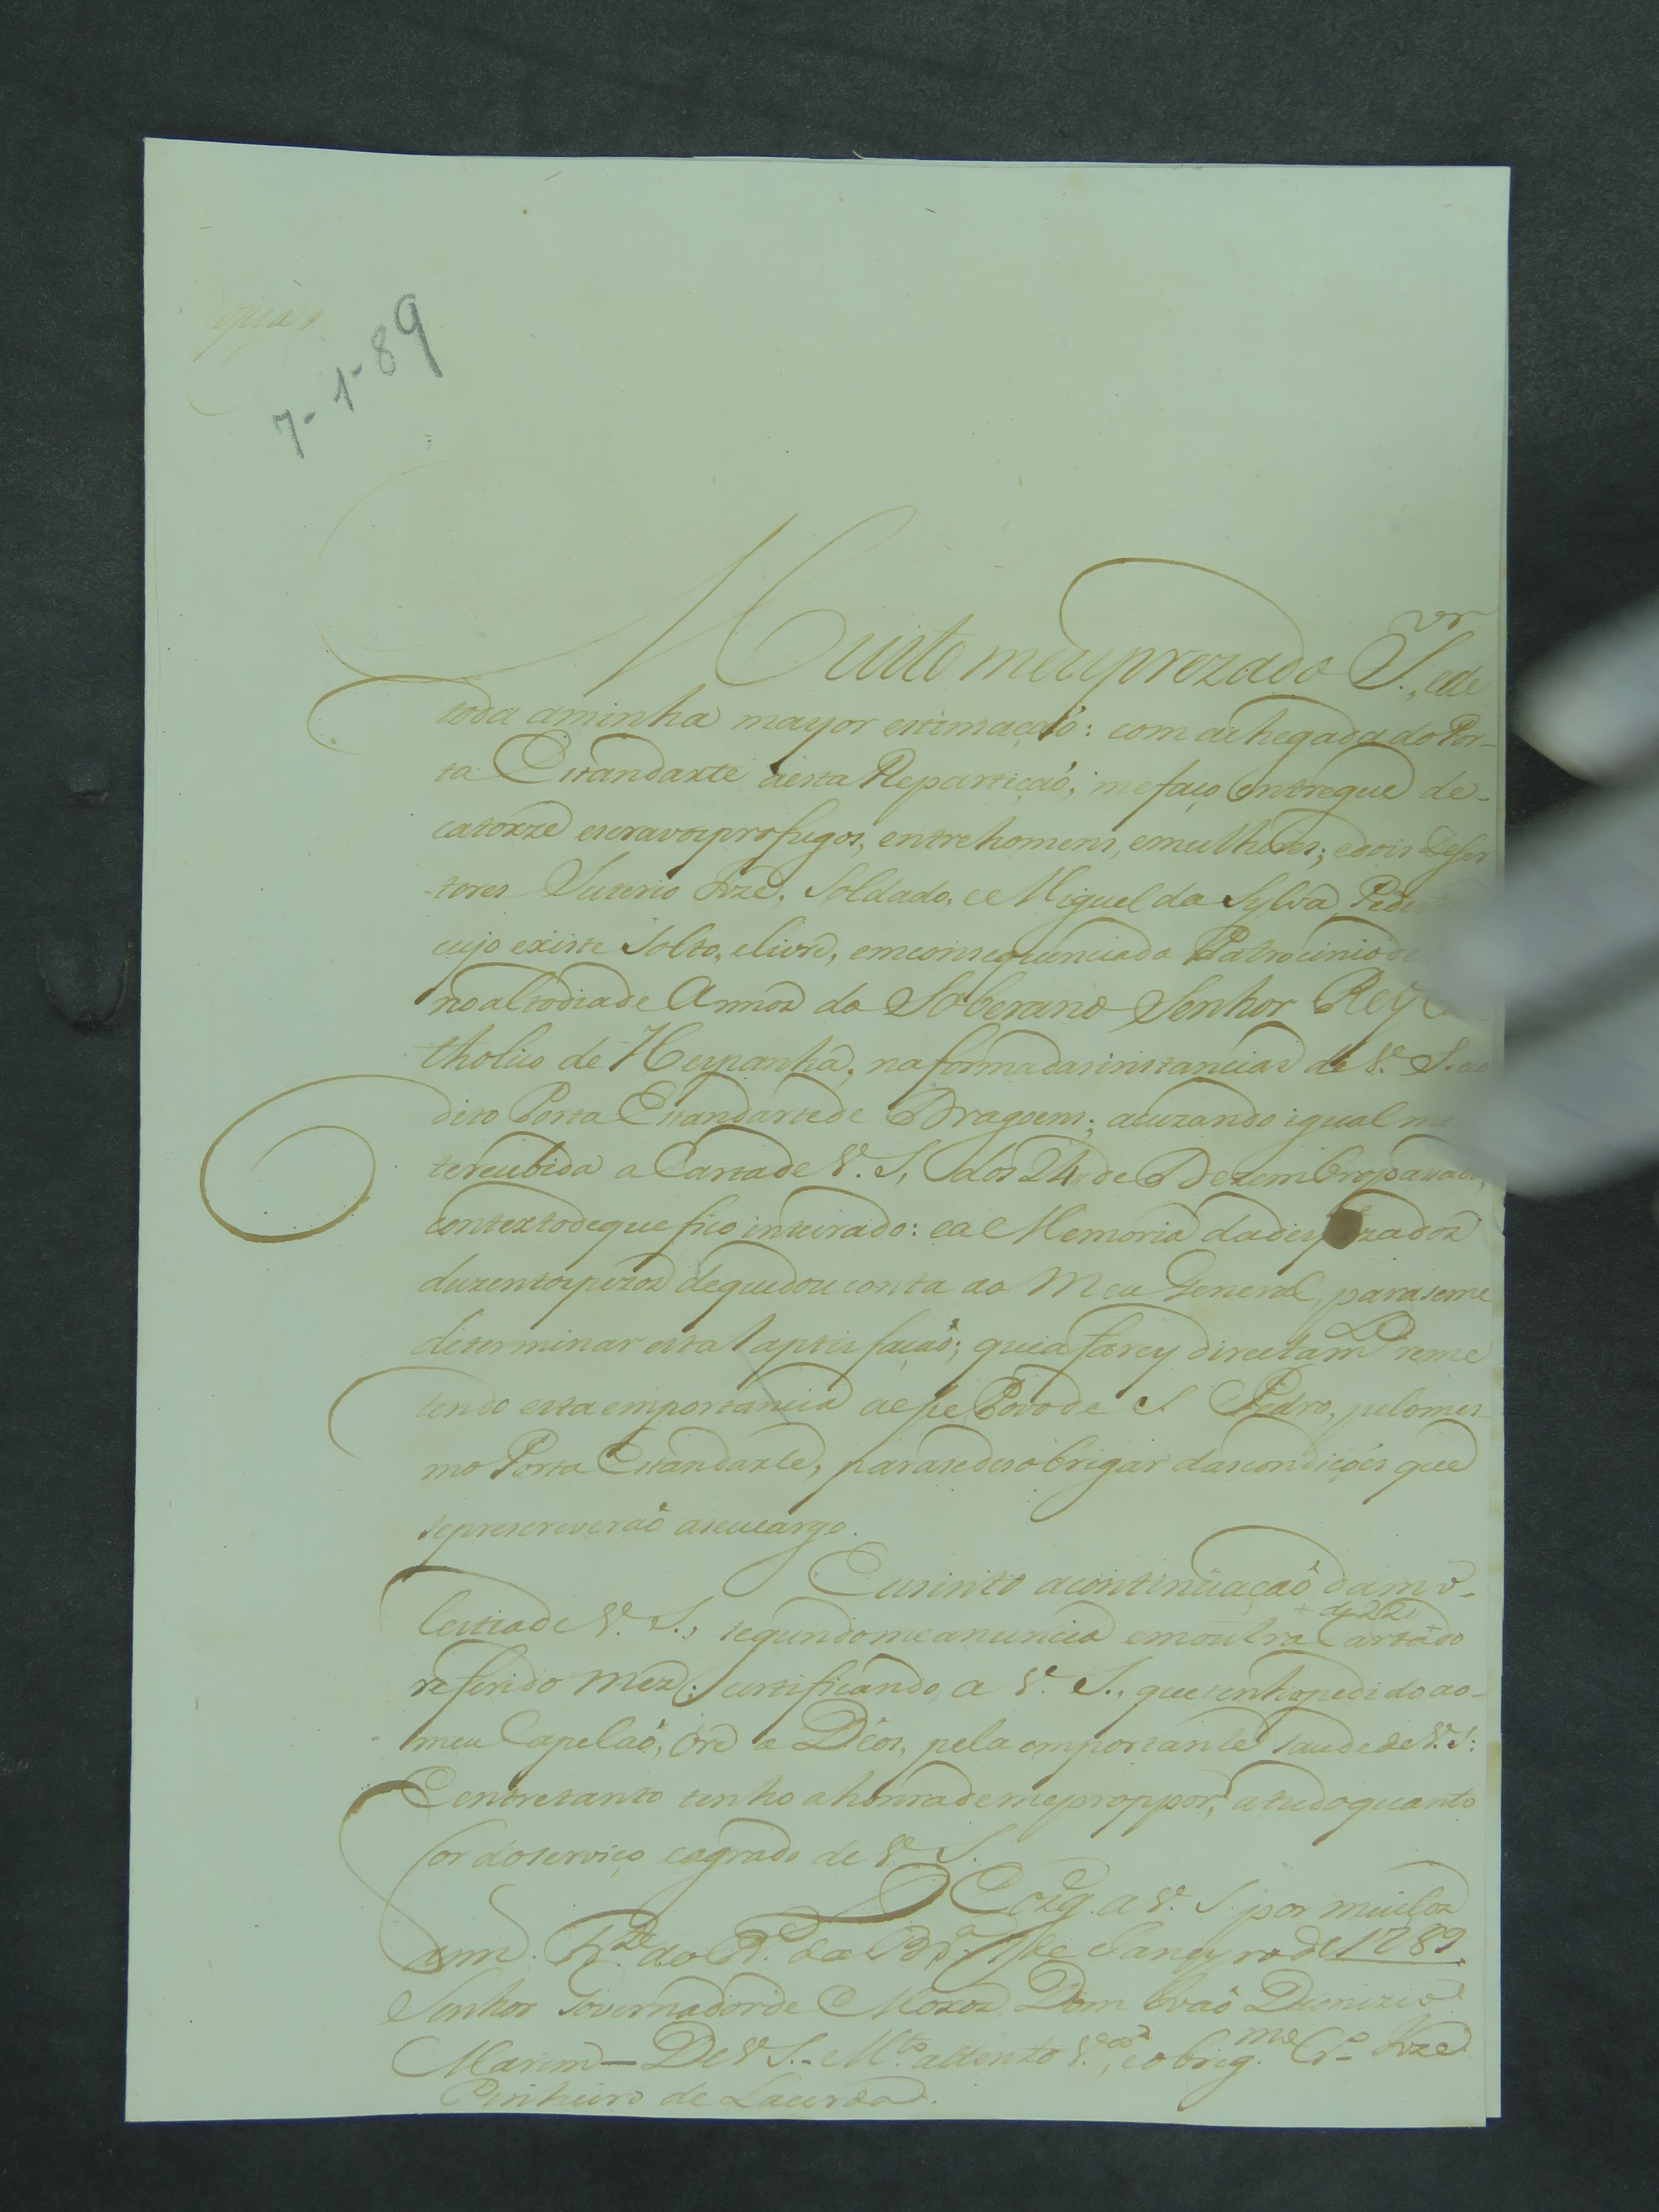 Copia
7-1-89
Muito meu prezado S.or, e de
toda a minha mayor estimaçaõ: com a chegada do Por-
ta Estandarte a esta Repartiçaõ, me faço entregue de
catorze escravos profugos, entre homens, e mulheres; e dois Deser
tores Suterio Joze, Soldado, e Miguel da Sylva, Pedestre
cujo existe solto, e livre, em consequencia do Patrocinio de
no alto dia de Annos do Soberano Senhor Rey Ca
tholico de Hespanha, na forma das instancias de V. S. ao
dito Porta Estandarte de Dragoens; acuzando igual men
te recebida a Carta de V. S. dos 24 de Dezembro passado,
contexto de que fico inteirado: e a Memoria da despezados
duzentos pezos de que dou conta ao Meu General, para se me
determinar esta saptisfaçaõ; que a farey directam.e reme
tendo esta emportancia a esse Povo de S Pedro, pelo mes-
mo Porta Estandarte, para se desobrigar das condiçoẽs que
se prescreveraõ a seu cargo.
Eu sinto a continuaçaõ da mo-
lestia de V. S., segundo me anuncia em outra Carta do
+ de 22
referido Mez: certificando a V. S., que tenho pedido ao
meu Capelaõ, Ore a Deos, pela emportante saude de V. S:
E entretanto tenho a honra de me proppor, a tudo quanto
for do serviço, e agrado de V. S.
D.s G.de a V. S. por muitos
ann. Fr.te do P.e da B.ra 7 de Janeyro de 1789
Senhor Governador de Moxos Dom Joaõ Dionizio
Marim — De V S. M.to attento V.or, e obrig.mo Cr.o Joze
Pinheiro de Lacerda.